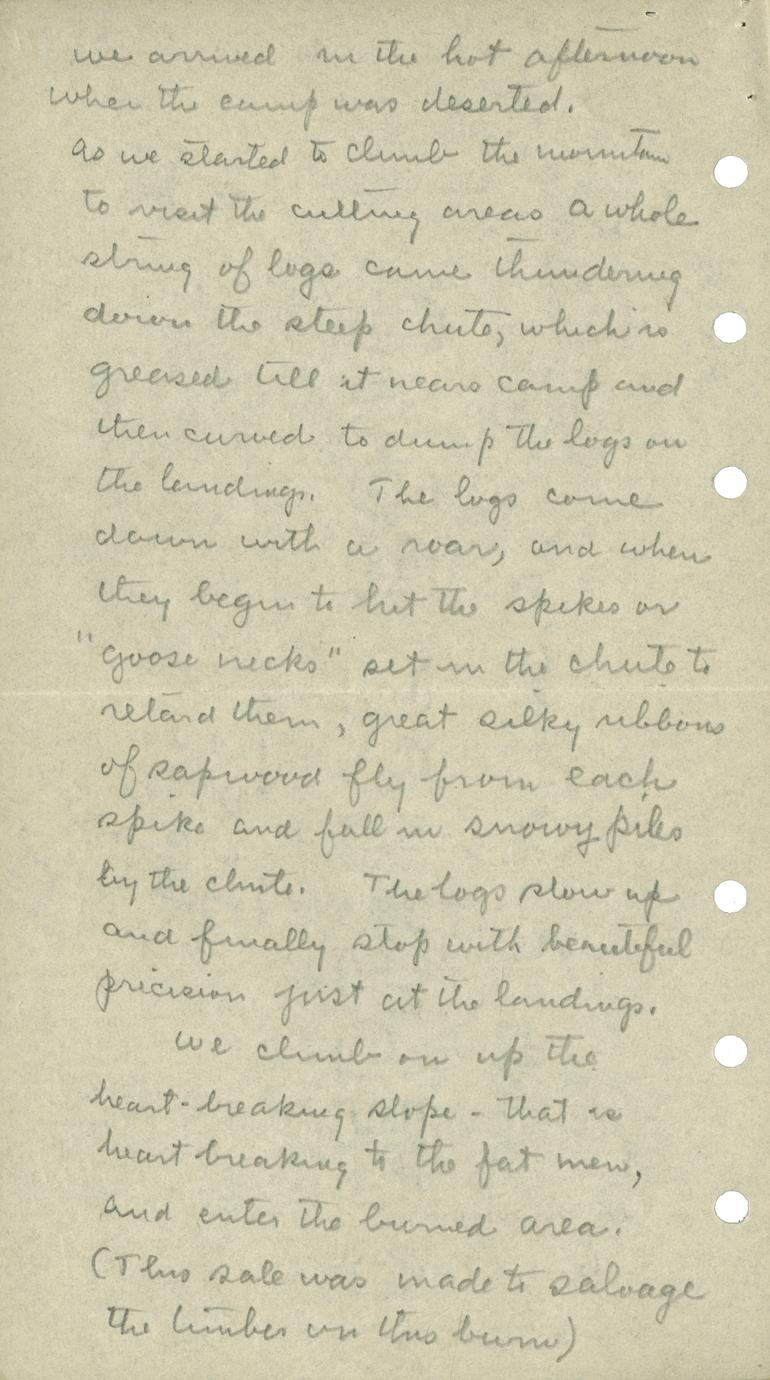 we arrived in the hot afternoon
when the camp was deserted.
As we started to climb the mountain
to visit the cutting areas a whole
string of logs came thundering
down the steep chute, which is
greased till it nears camp and
then curved to dump the logs on
the landings. The logs come
down with a roar, and when
they begin to hit the spikes or
"goose necks" set in the chute to
retard them, great silky ribbons
of sapwood fly from each
spike and fall in snowy piles
by the chute. The logs slow up
and finally stop with beautiful
precision just at the landings.
We climb on up the
heart-breaking slope - that is
heart breaking to the fat men,
and enter the burned area.
(This sale was made to salvage
the timber on this burn)